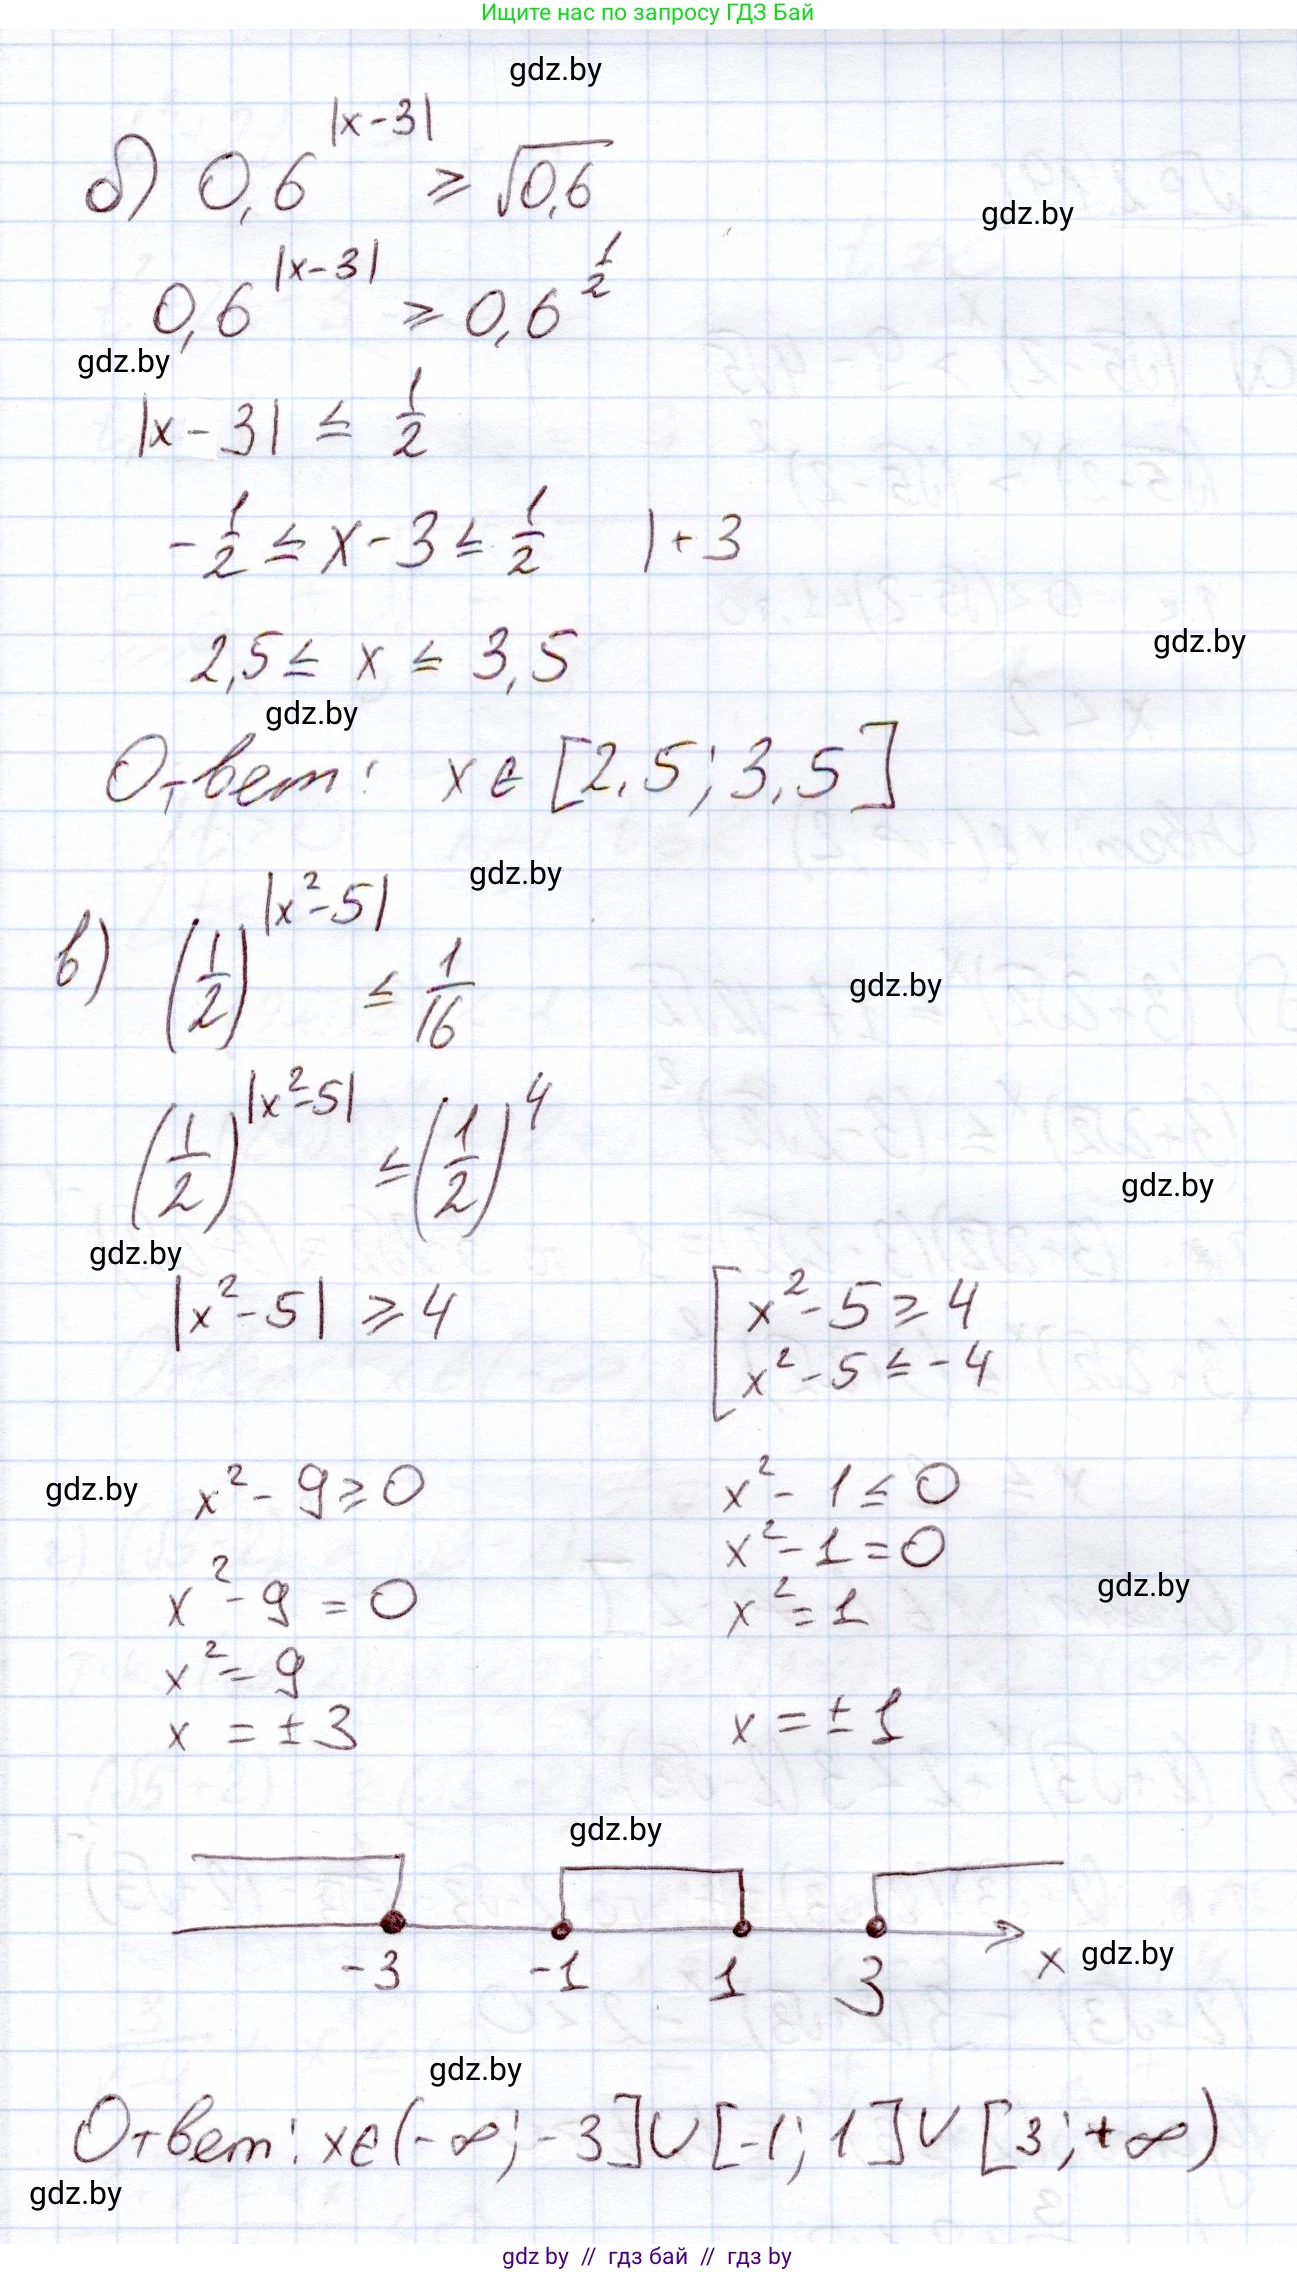 Ищите нас по запросу ГДЗ Бай
gdz.by
б) 0,6^|x-3| ≥ √0,6
gdz.by
0,6^|x-3| ≥ 0,6^(1/2)
gdz.by
|x-3| ≤ 1/2
-1/2 ≤ x-3 ≤ 1/2 |+3
gdz.by
2,5 ≤ x ≤ 3,5
gdz.by
Ответ: x∈[2,5; 3,5]
gdz.by
в) (1/2)^|x²-5| ≤ 1/16
gdz.by
(1/2)^|x²-5| ≤ (1/2)^4
gdz.by
gdz.by
|x²-5| ≥ 4 [x²-5 ≥ 4
x²-5 ≤ -4
gdz.by
x²-9 ≥ 0 x²-1 ≤ 0
x²-9 = 0 x²-1 = 0
gdz.by
x² = 9 x² = 1
x = ±3 x = ±1
gdz.by
-3 -1 1 3 x
gdz.by
gdz.by
Ответ: x∈(-∞; -3]∪[-1; 1]∪[3; +∞)
gdz.by
gdz by // гдз бай // гдз by